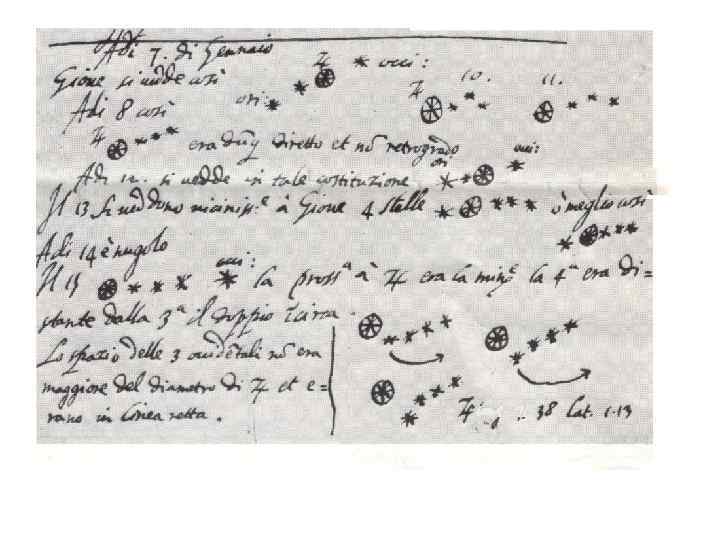 Adi 7. di Gennaio
Gioue si uedde così ori: ♃ occi:
Adi 8 così ♃ 10. 11.
♃ era dūq diretto et nō retrogrado
Adi 12. si uedde in tale costituzione ori occi:
Il 13 si ueddono uiciniss.e à Gioue 4 stelle ò meglio così
Adi 14 è nugolo
Il 15 occi: la pross.a à ♃ era la min.e la 4.a era di=
stante dalla 3.a il doppio circa.
Lo spazio delle 3 occidētali nō era
maggiore del diametro di ♃ et e=
rano in linea retta.
♃ 38 Lat. 1.13